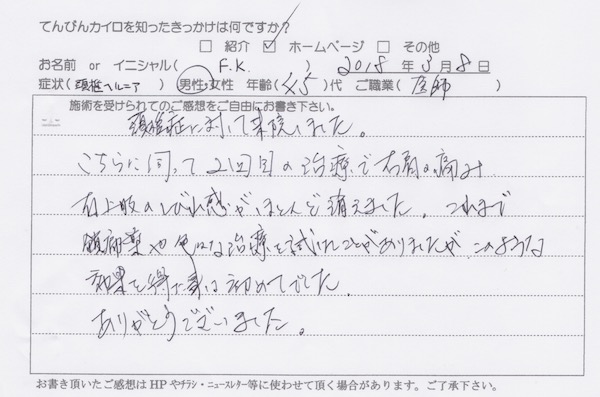 てんびんカイロを知ったきっかけは何ですか?
□ 紹介 ☑ ホームページ □ その他
お名前 or イニシャル( F.K. ) 2018 年 3 月 8 日
症状(頚椎ヘルニア) 男性・女性 年齢( 45 )代 ご職業( 医師 )
施術を受けられてのご感想をご自由にお書き下さい。
頚椎症に対して来院しました。
こちらに伺って2回目の治療で右肩の痛み
右上肢のしびれ感がほとんど消えました。これまで
鎮痛薬や色々な治療を試したことがありましたが、このような
効果を得た事は初めてでした。
ありがとうございました。
お書き頂いたご感想は HP やチラシ・ニュースレター等に使わせて頂く場合があります。ご了承下さい。